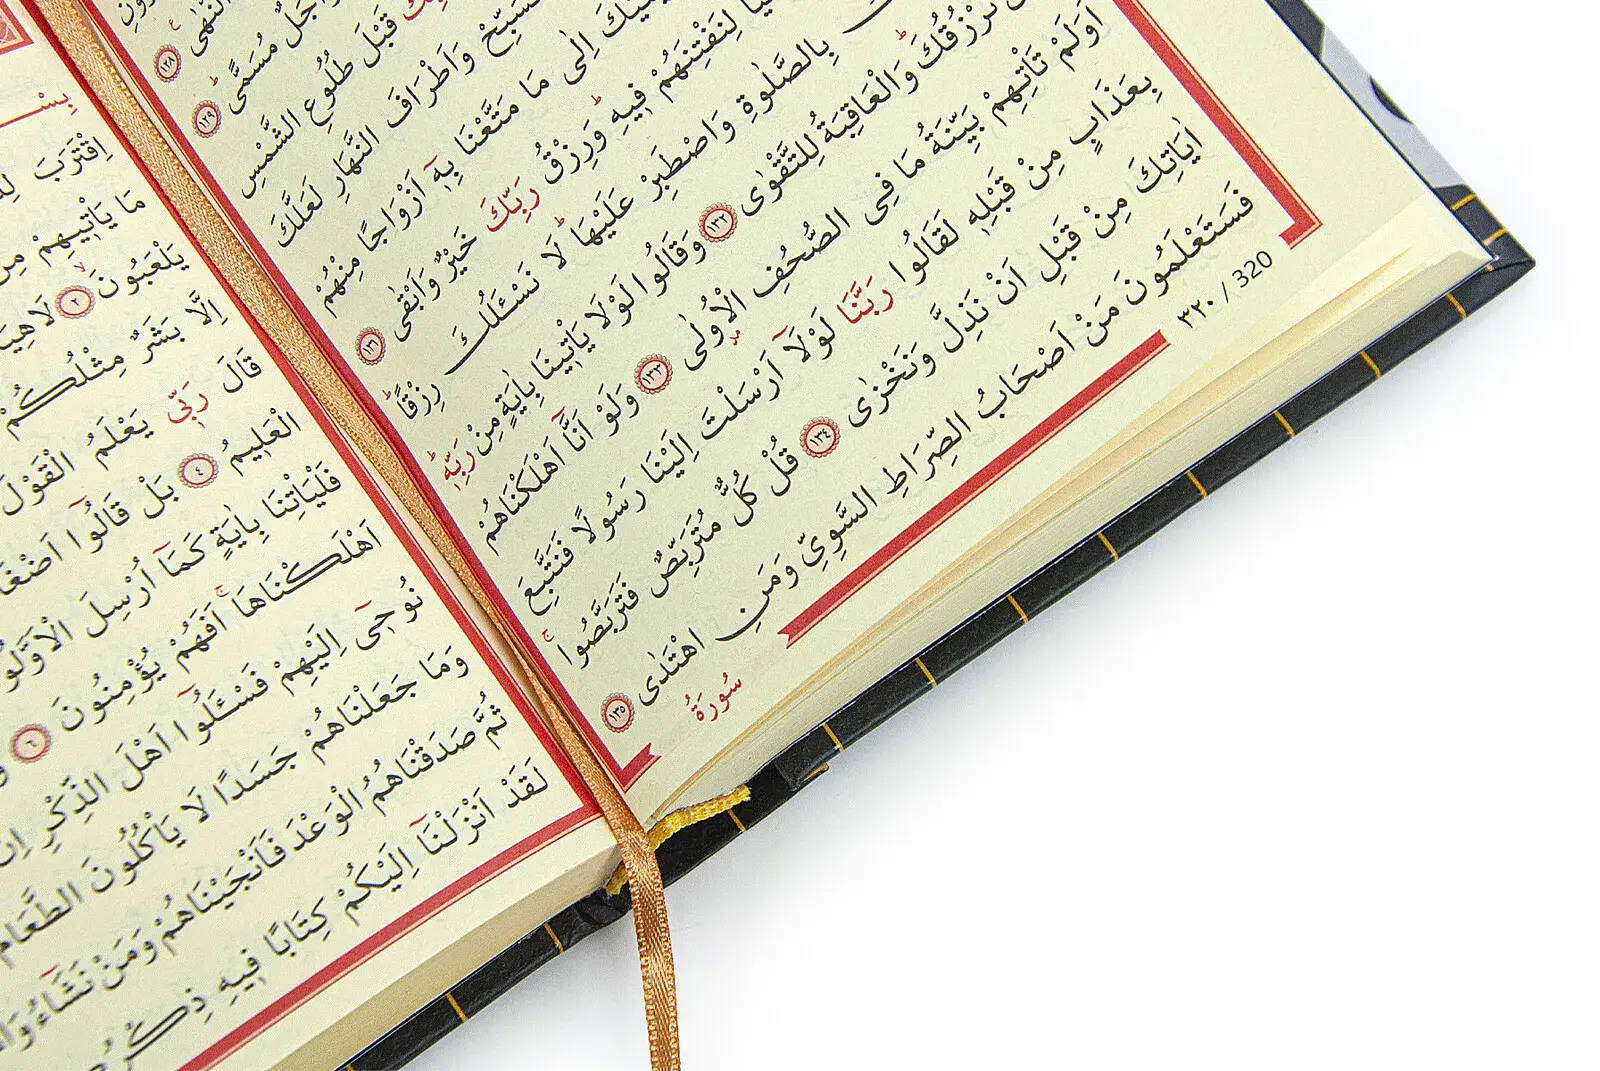 النُّهٰى ١٢٨
اَجَلٌ مُسَمًّى ١٢٩
قَبْلَ طُلُوعِ الشَّمْسِ
فَسَبِّحْ وَاَطْرَافَ النَّهَارِ لَعَلَّكَ
اِلٰى مَا مَتَّعْنَا بِهٖٓ اَزْوَاجًا مِنْهُمْ
لِنَفْتِنَهُمْ فِيهِ وَرِزْقُ رَبِّكَ خَيْرٌ وَاَبْقٰى ١٣١
بِالصَّلٰوةِ وَاصْطَبِرْ عَلَيْهَا لَا نَسْـَٔلُكَ رِزْقًا
نَرْزُقُكَ وَالْعَاقِبَةُ لِلتَّقْوٰى ١٣٢ وَقَالُوا لَوْلَا يَاْتِينَا بِاٰيَةٍ مِنْ رَبِّهٖ
اَوَلَمْ تَاْتِهِمْ بَيِّنَةُ مَا فِى الصُّحُفِ الْاُولٰى ١٣٣ وَلَوْ اَنَّٓا اَهْلَكْنَاهُمْ
بِعَذَابٍ مِنْ قَبْلِهٖ لَقَالُوا رَبَّنَا لَوْلَٓا اَرْسَلْتَ اِلَيْنَا رَسُولًا فَنَتَّبِعَ
اٰيَاتِكَ مِنْ قَبْلِ اَنْ نَذِلَّ وَنَخْزٰى ١٣٤ قُلْ كُلٌّ مُتَرَبِّصٌ فَتَرَبَّصُوا
فَسَتَعْلَمُونَ مَنْ اَصْحَابُ الصِّرَاطِ السَّوِيِّ وَمَنِ اهْتَدٰى ١٣٥
٣٢٠ / 320
سُورَةُ
اِقْتَرَبَ
مَا يَاْتِيهِمْ مِنْ
يَلْعَبُونَ ٢ لَاهِيَةً
اِلَّا بَشَرٌ مِثْلُكُمْ
قَالَ رَبِّى يَعْلَمُ الْقَوْلَ
الْعَلِيمُ ٤ بَلْ قَالُٓوا اَضْغَاثُ
فَلْيَاْتِنَا بِاٰيَةٍ كَمَٓا اُرْسِلَ الْاَوَّلُونَ
اَهْلَكْنَاهَا اَفَهُمْ يُؤْمِنُونَ ٦
نُوحٖٓى اِلَيْهِمْ فَسْـَٔلُٓوا اَهْلَ الذِّكْرِ اِنْ
وَمَا جَعَلْنَاهُمْ جَسَدًا لَا يَاْكُلُونَ الطَّعَامَ
ثُمَّ صَدَقْنَاهُمُ الْوَعْدَ فَاَنْجَيْنَاهُمْ وَمَنْ نَشَٓاءُ
لَقَدْ اَنْزَلْنَٓا اِلَيْكُمْ كِتَابًا فِيهِ ذِكْرُكُمْ